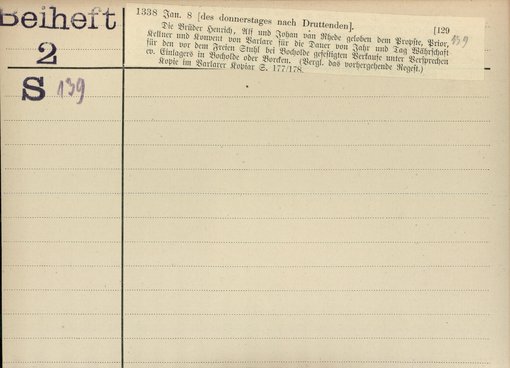 Beiheft
2
S 139
1338 Jan. 8 [des donnerstages nach Druttenden]. [129
Die Brüder Henrich, Alf und Johan van Rhede geloben dem Propste, Prior, 139
Kellner und Konvent von Varlare für die Dauer von Jahr und Tag Währschaft
für den vor dem Freien Stuhl bei Bocholde gefestigten Verkaufe unter Versprechen
ev. Einlagers in Bocholde oder Borcken. (Vergl. das vorhergehende Regest.)
Kopie im Varlarer Kopiar S. 177/178.